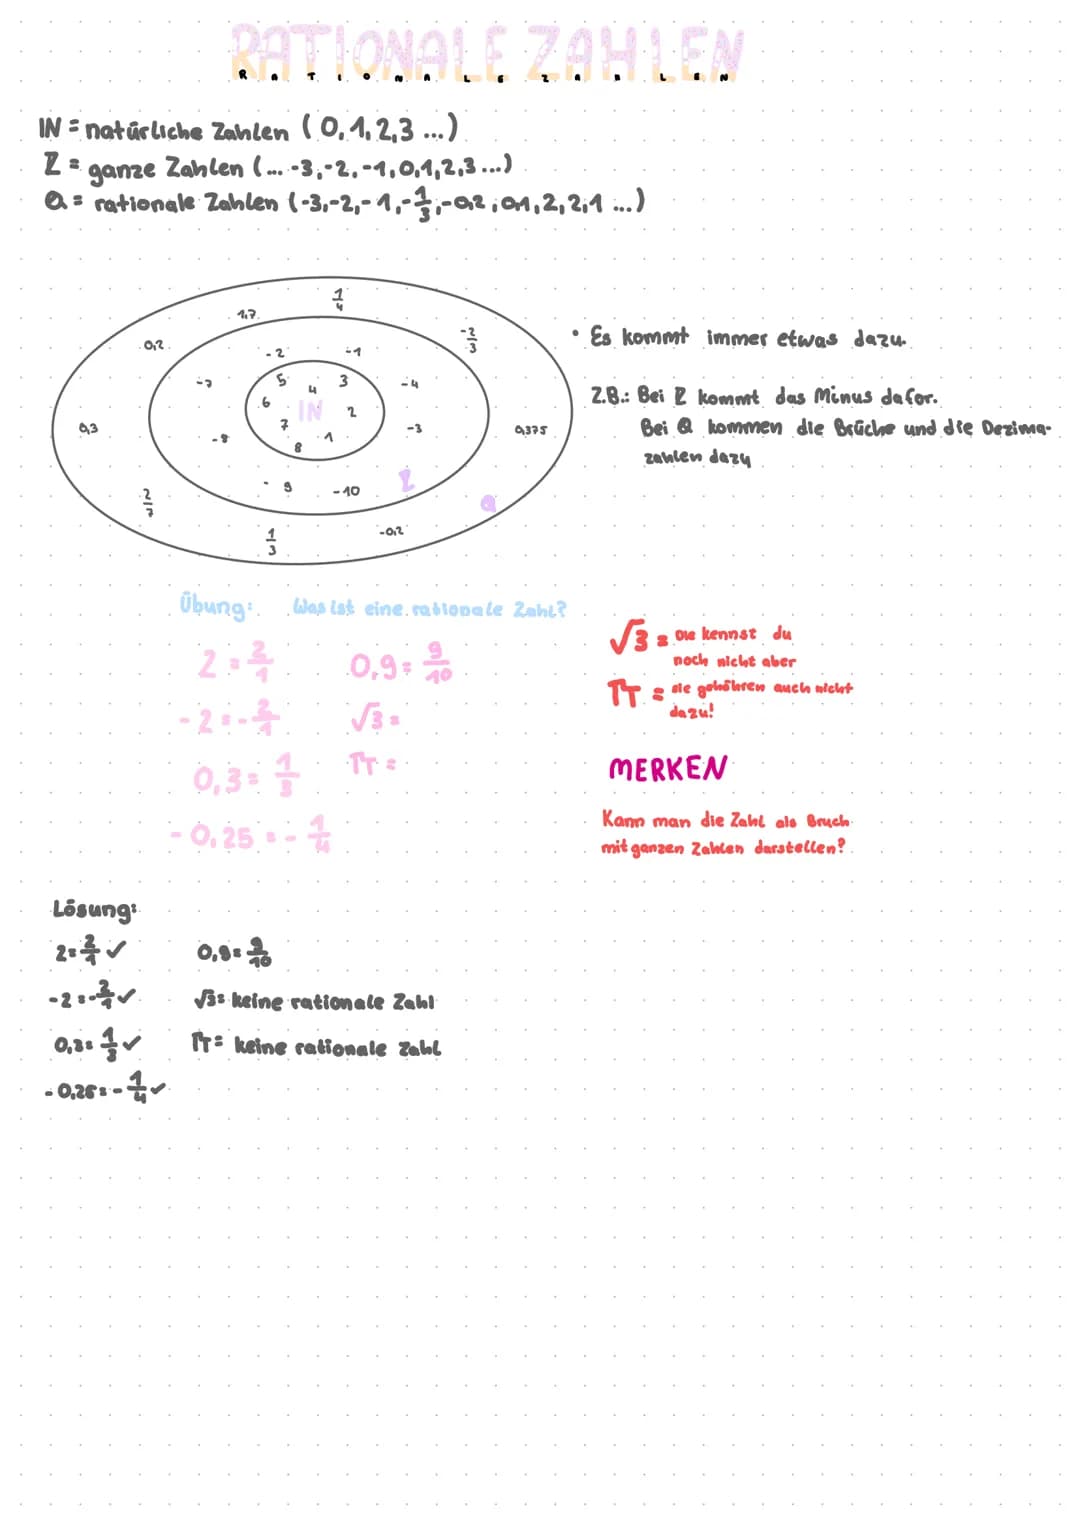 RATIONALE ZAHLEN
RATIONALE ZAHLEN
IN = natürliche Zahlen (0,1,2,3 ...)
Z = ganze Zahlen (... -3,-2,-1,0,1,2,3 ...)
Q = rationale Zahlen (-3,-2,-1,-1/3,-0,2,0,1,2,2,1 ...)
1/4
1,7
-2/3
0,2
-2 -1
-7 5 4 3 -4
6 IN 2
0,3 -8 7 1 -3 0,375
8
2/7 -9 -10 Z
Q
1/3 -0,2
• Es kommt immer etwas dazu.
Z.B.: Bei Z kommt das Minus dafor.
Bei Q kommen die Brüche und die Dezima-
zahlen dazu
Übung: Was ist eine rationale Zahl?
2 = 2/1 0,9 = 9/10
-2 = -2/1 √3 =
0,3 = 1/3 π =
-0,25 = -1/4
√3 = Die kennst du
noch nicht aber
π = sie gehöhren auch nicht
dazu!
MERKEN
Kann man die Zahl als Bruch
mit ganzen Zahlen darstellen?
Lösung:
2 = 2/1 ✓ 0,9 = 9/10
-2 = -2/1 ✓ √3 = keine rationale Zahl
0,3 = 1/3 ✓ π = keine rationale Zahl
-0,25 = -1/4 ✓